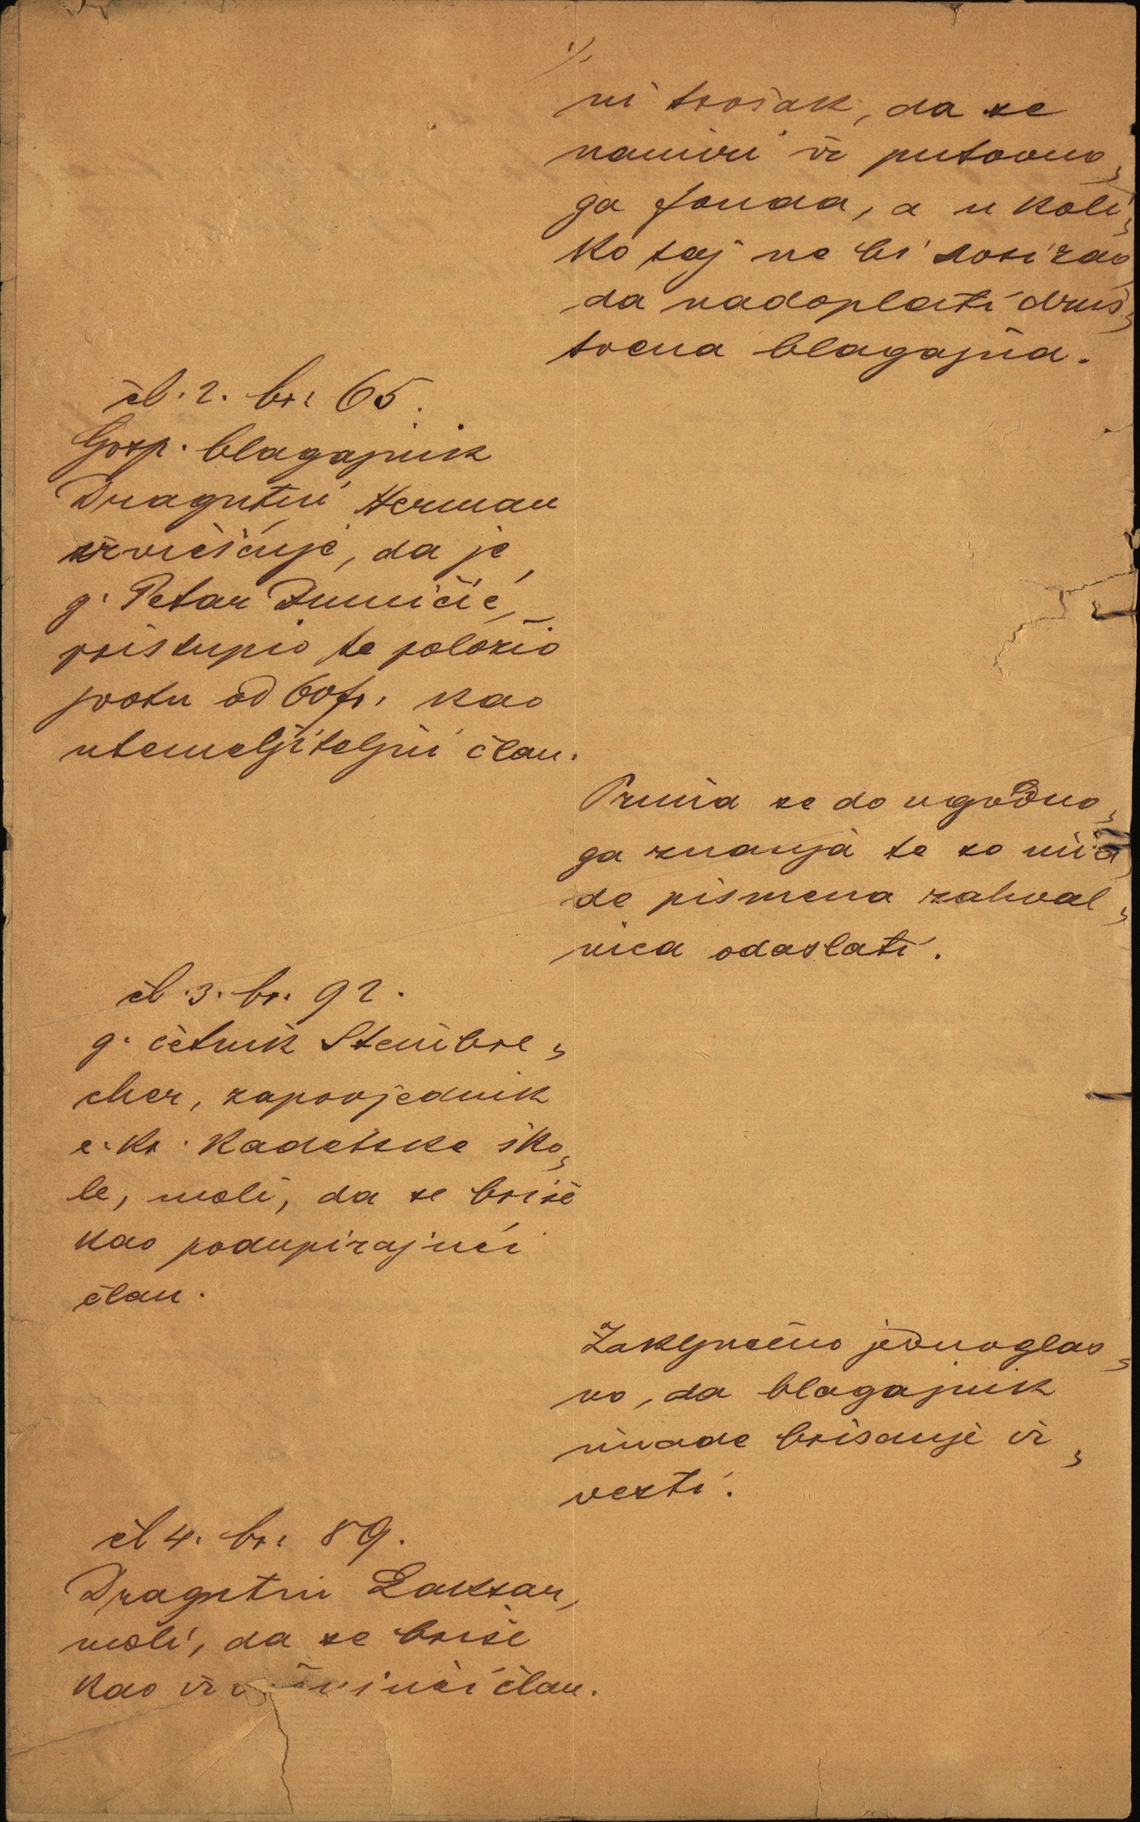 ·/.
ni trošak, da se
namiri iz putovno„
ga fonda, a u koli„
ko taj ne bi dosizao
da nadoplati druš„
tvena blagajna.
čl. 2. br. 65.
Gosp. blagajnik
Dragutin Herman
izvješćuje, da je
g. Petar
pristupio te položio
svotu od 60 fr. kao
utemeljiteljni član.
Prima se do ugodno„
ga znanja te se ima
de pismena zahval„
nica odaslati.
čl. 3. br. 92.
g. četnik Steinbre„
cher, zapovjednik
c. kr. kadetske ško„
le, moli, da se briše
kao podupirajući
član.
Zaključeno jednoglas„
no, da blagajnik
imade brisanje iz„
vesti.
čl 4. br. 89.
Dragutin Laksar,
moli, da se briše
kao član.